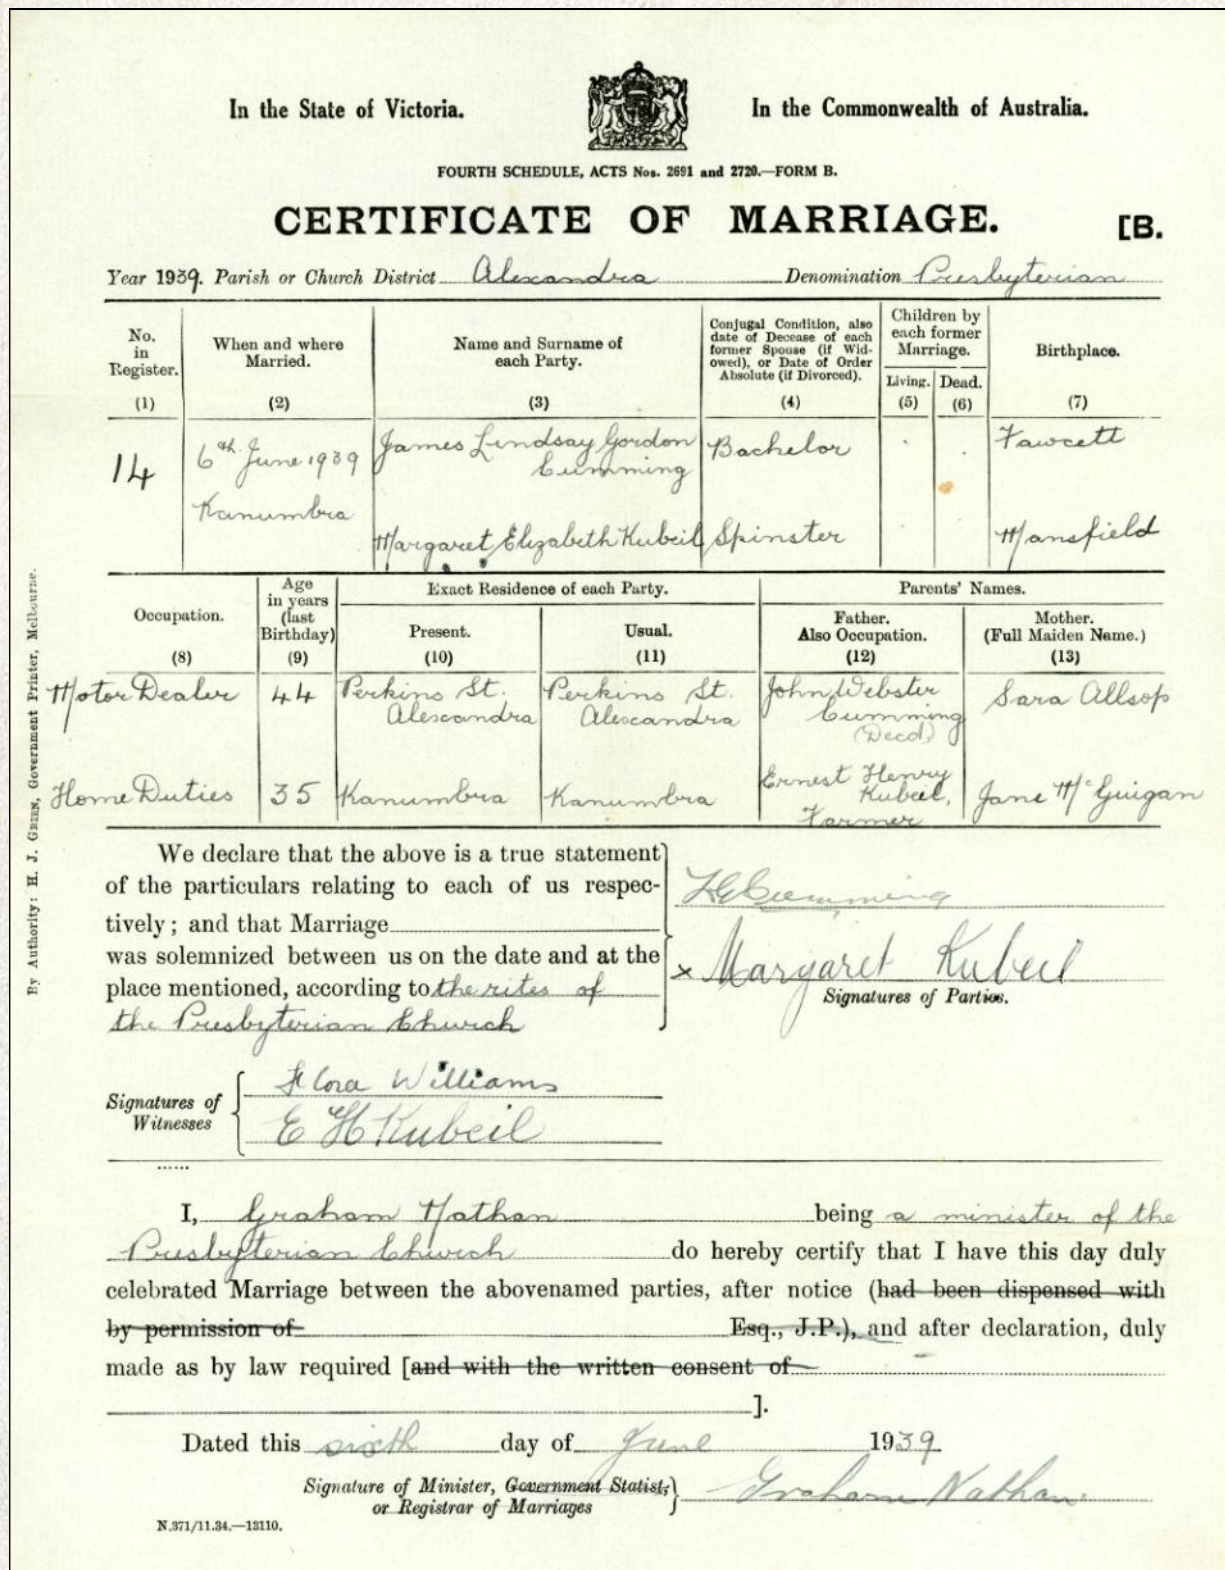 In the State of Victoria. In the Commonwealth of Australia.
FOURTH SCHEDULE, ACTS Nos. 2691 and 2720.—FORM B.
CERTIFICATE OF MARRIAGE. [B.
Year 1939. Parish or Church District Alexandra Denomination Presbyterian
No. in Register. (1)
When and where Married. (2)
Name and Surname of each Party. (3)
Conjugal Condition, also date of Decease of each former Spouse (if Widowed), or Date of Order Absolute (if Divorced). (4)
Children by each former Marriage.
Living. (5)
Dead. (6)
Birthplace. (7)
14
6th June 1939
Kanumbra
James Lindsay Gordon
Cumming
Bachelor
Fawcett
Margaret Elizabeth Kubeil
Spinster
Mansfield
Occupation. (8)
Age in years (last Birthday) (9)
Exact Residence of each Party.
Present. (10)
Usual. (11)
Parents' Names.
Father. Also Occupation. (12)
Mother. (Full Maiden Name.) (13)
Motor Dealer
44
Perkins St.
Alexandra
Perkins St.
Alexandra
John Webster
Cumming
(Decd)
Sara Allsop
Home Duties
35
Kanumbra
Kanumbra
Ernest Henry
Kubeil,
Farmer
Jane McGuigan
We declare that the above is a true statement
of the particulars relating to each of us respec-
tively; and that Marriage
was solemnized between us on the date and at the
place mentioned, according to the rites of
the Presbyterian Church
Cumming
x Margaret Kubeil
Signatures of Parties.
Signatures of Witnesses
Flora Williams
E H Kubeil
I, Graham Nathan being a minister of the
Presbyterian Church do hereby certify that I have this day duly
celebrated Marriage between the abovenamed parties, after notice (had been dispensed with
by permission of Esq., J.P.), and after declaration, duly
made as by law required [and with the written consent of
].
Dated this sixth day of June 1939
Signature of Minister, Government Statist,
or Registrar of Marriages
Graham Nathan
N.371/11.34.—13110.
By Authority: H. J. GREEN, Government Printer, Melbourne.